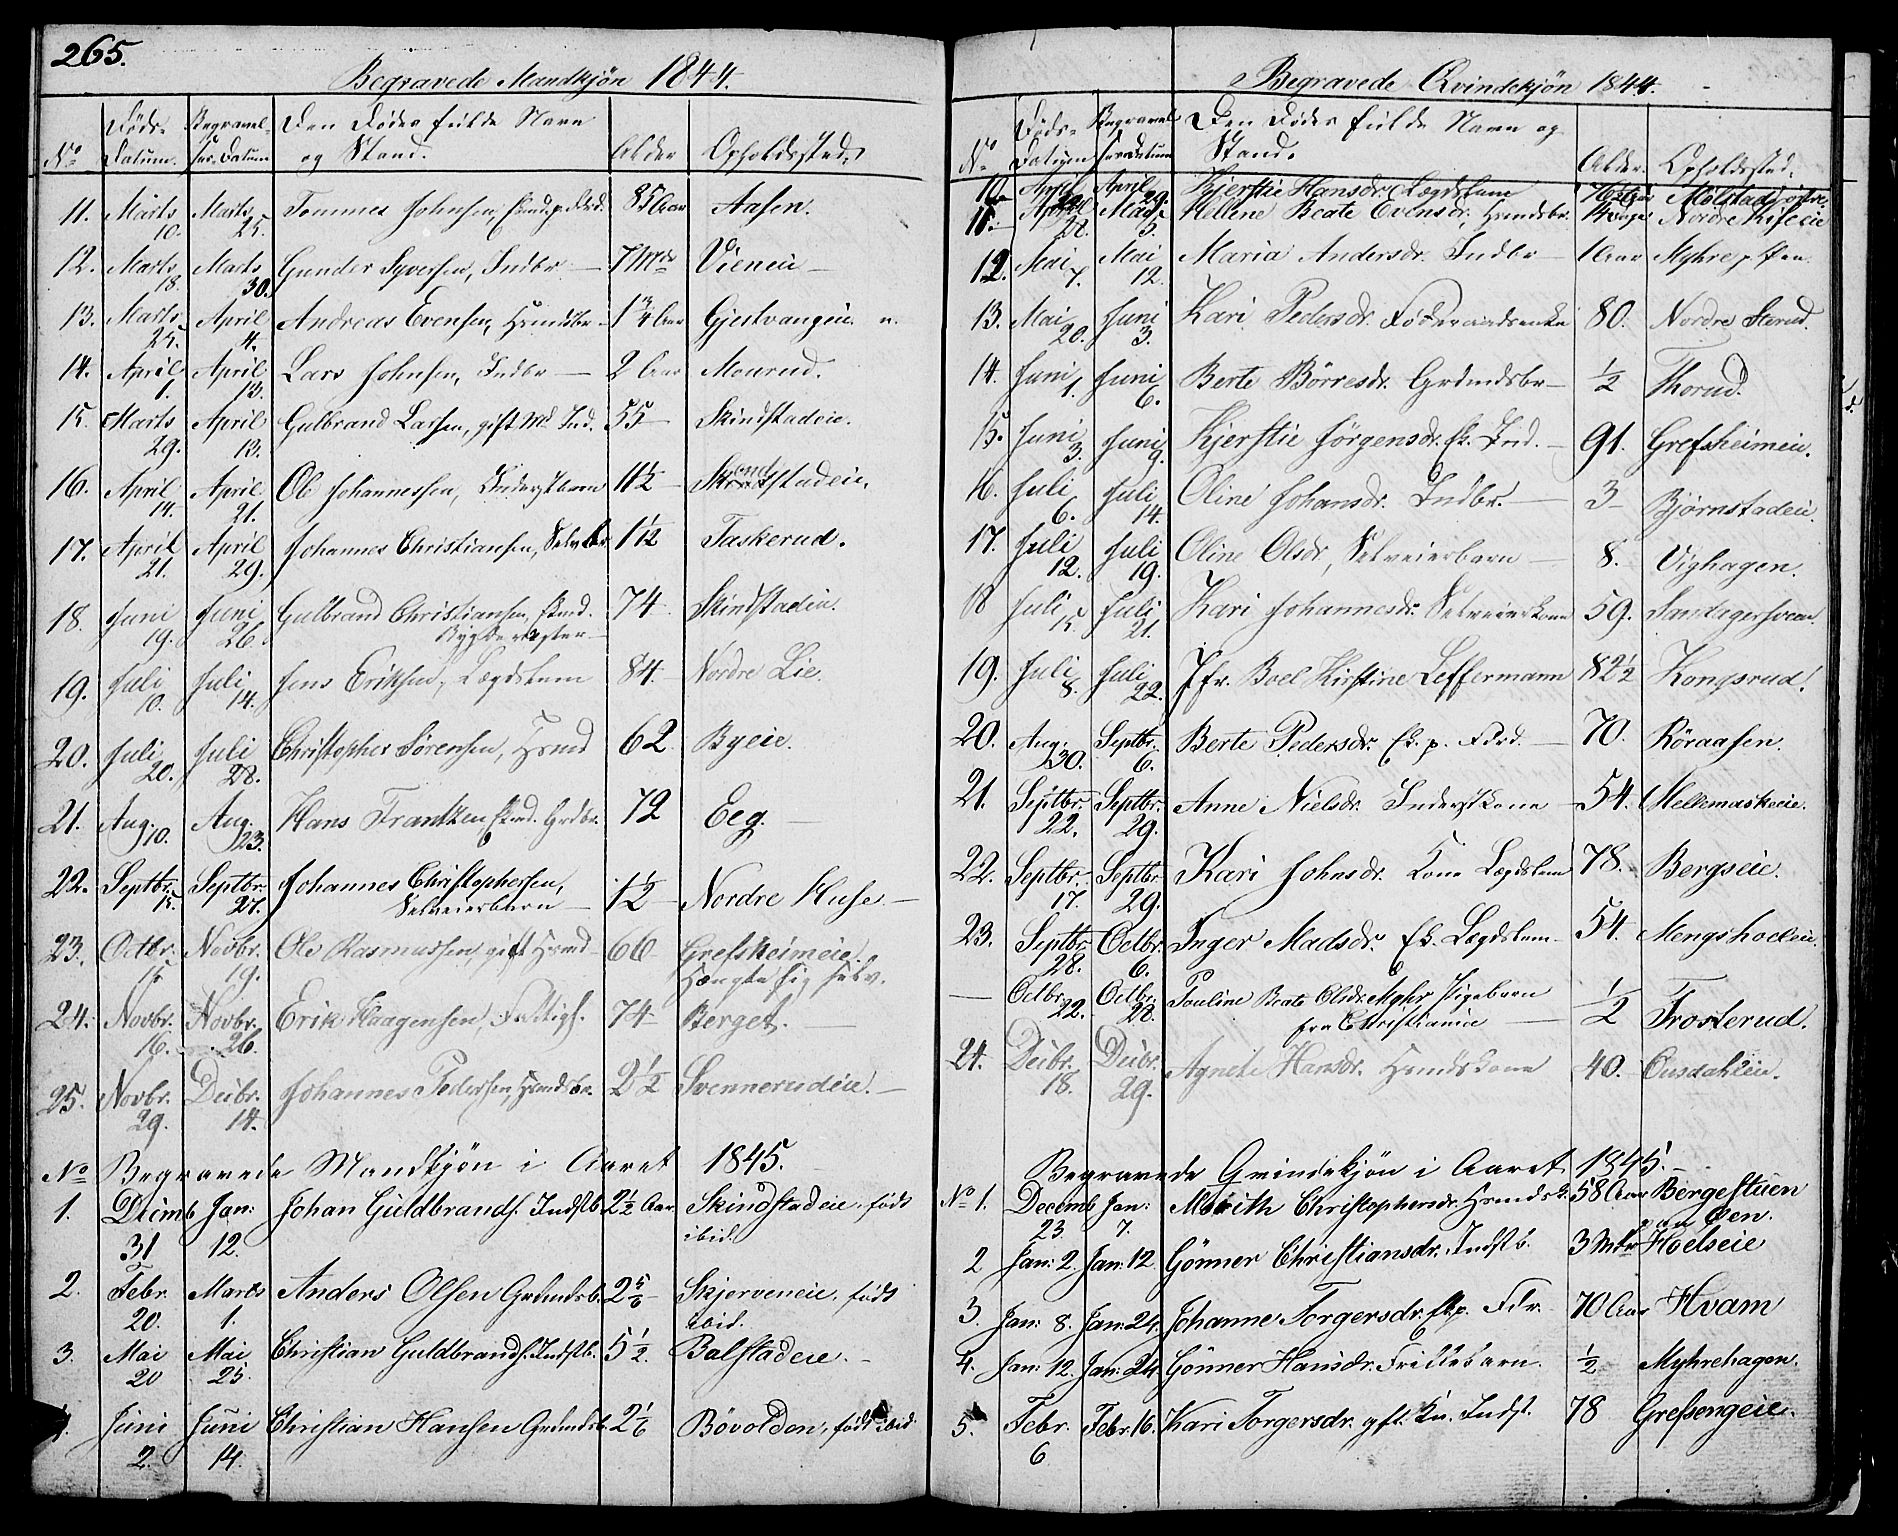 265.
Begravede Mandkjøn 1844.
No Døds-Datum. Begravelses-Datum Den Dødes fulde Navn og Stand. Alder Opholdssted.
11. Marts 10. Marts 25. Tommes Johnsen, 85 Aar Aasen.
12. Marts 18. Marts 30. Gunder Syversen, Indbr 7 Mdr Vieneie
13. Marts 25. April 4. Andreas Evensen, Hsmdsbr 1 3/4 Aar Gjestvangeie
14. April 1. April 13. Lars Johnsen, Indbr 2 Aar Mourud.
15. Marts 29. April 13. Gulbrand Larsen, gift Md. Ind. 55 Skindstadeie.
16. April 14. April 21. Ole Johannessen, Inderstbarn 11½ stadeie.
17. April 21. April 29. Johannes Christiansen, Selvbr 1½ Taskerud.
18. Juni 19. Juni 26. Gulbrand Christiansen, Ekmd. 74 Skindstadeie.
19. Juli 10. Juli 14. Jens Eriksen, Lægdslem 84. Nordre Lie.
20. Juli 20. Juli 28. Christopher Sørensen, Hsmd 62 Byeie.
21. Aug. 10. Aug. 23. Hans Frantzen Ekmd. Grdbr. 72 Eeg.
22. Septbr. 15. Septbr. 27. Johannes Christophersen,
Selveierbarn 1½ Nordre Huse
23. Octbr. 15 Novbr. 19. Ole Rasmussen, gift Hsmd 66 Grefsheimeie.
Hængte sig selv.
24. Novbr. 16. Novbr. 26. Erik Haagensen, Fattigl. 74 Berget.
25. Novbr. 29. Decbr. 14. Johannes Pedersen, Hsmdsbr. 2½ Svennerudeie.
No Begravede Mandkjøn i Aaret 1845.
1. Decmb 31 Jan: 12. Johan Guldbrands. Indstb. 2½ Aar Skindstadeie. født
ibid.
2. Febr. 20. Marts 1. Anders Olsen Grdmdsb. 2 5/6 Skjerveneie. født
ibid.
3. Mai 20 Mai 25. Christian Guldbrands. Indstb. 5½. Balstadeie.
4. Juni 2. Juni 14. Christian Hansen Grdmdsb. 2 1/6 Bøvolden, født ibid
Begravede Qvindekjøn 1844.
No Døds-Datum Begravelsesdatum Den Dødes fulde Navn og Stand. Alder. Opholdssted.
10. April April 29. Kjerstie Hansdr. Lægdslem 76
11. April 28. Mai 5. Hellene Beate Evensdr. Hsmdsbr. 14 Dage Nordre Kiseeie
12. Mai 7. Mai 12. Maria Andersdr. Indbr 1 Aar Myhre p. Øen
13. Mai 20. Juni 3. Kari Pedersdr. Føderaadsenke 80. Nordre Sterud.
14. Juni 1. Juni 6. Berte Børresdr. Grdmdsbr ½ Thorud.
15. Juni 3. Juni 9. Kjerstie Jørgensdr. Ek. Ind. 91. Grefsheimeie.
16. Juli 6. Juli 14. Oline Johansdr. Indbr. 3 Bjørnstadeie.
17. Juli 12. Juli 19. Oline Olsdr, Selveierbarn 8. Vighagen.
18 Juli 15. Juli 21. Kari Johannesdr. Selveierkone 59. Sandagersveen.
19. Juli 8. Juli 22. Jfr. Boel Kirstine Leffermann 82½ Kongsrud.
20. Aug. 30. Septbr. 6. Berte Pedersdr. Ek. p. Fdrd. 70. Røraasen.
21. Septbr. 22. Septbr. 29. Anne Nielsdr. Inderstkone 54. Mellemaskeie.
22. Septbr. 17. Septbr. 29. Kari Johnsdr. Kone Lægdslem 78. Bergseie.
23. Septbr. 28. Octbr. 6. Inger Madsdr. Ek. Lægdslem 54. Mengshoeleie.
— Octbr. 22. Octbr. 28. Pauline Beate Olsdr. Myhr Pigebarn
fra Christiania ½ Frosterud.
24. Decbr. 18. Decbr. 29. Agnete Hansdr. Hsmdskone 40. Ousdahleie.
Begravede Qvindekjøn i Aaret 1845.
No 1. Decemb 23. Jan: 7. Marith Christophersdr. Hsmdsk. 58 Aar Bergestuen
paa Øen.
2 Jan: 2. Jan: 12 Gönner Christiansdr. Indstb. 3 Mdr Hoelseie
3. Jan: 8. Jan: 24. Johanne Torgersdr. Ek p. Fdr. 70 Aar Hvam
4. Jan: 12. Jan: 24. Gönner Hansdr. Frillebarn. ½ Myhrehagen.
5. Febr. 6 Febr. 16. Kari Torgersdr. gft. Kn. Indst. 78 Grefsengeie.